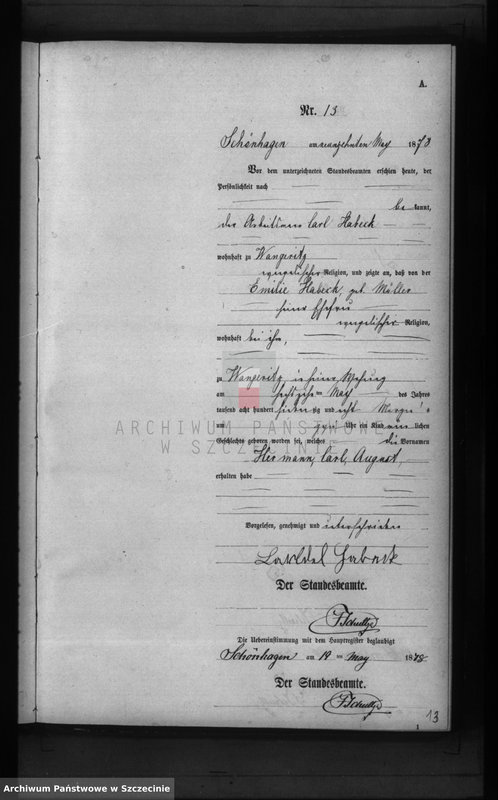 A.
Nr. 13
Schönhagen am neunzehnten May 1878
Vor dem unterzeichneten Standesbeamten erschien heute, der
Persönlichkeit nach
be kannt,
der Arbeitsmann Carl Habeck
wohnhaft zu Wangeritz
evangelischer Religion, und zeigte an, daß von der
Emilie Habeck, geb. Müller
seiner Ehefrau
evangelischer Religion,
wohnhaft bei ihm,
zu Wangeritz, in seiner Wohnung
am ten May des Jahres
tausend acht hundert siebenzig und acht Morgens
um Uhr ein Kind männlichen
Geschlechts geboren worden sei, welches die Vornamen
Hermann, Carl, August,
erhalten habe
ARCHIWUM PAŃSTWOWE
W SZCZECINIE
Vorgelesen, genehmigt und unterschrieben
Habeck
Der Standesbeamte.
F Schultze
Die Uebereinstimmung mit dem Hauptregister beglaubigt
Schönhagen am 19 ten May 1878
Der Standesbeamte.
F Schultze
13
Archiwum Państwowe w Szczecinie